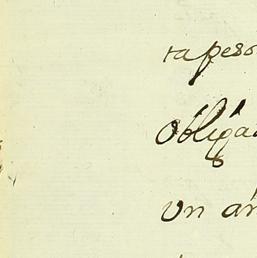 rapeso
obliga
un an